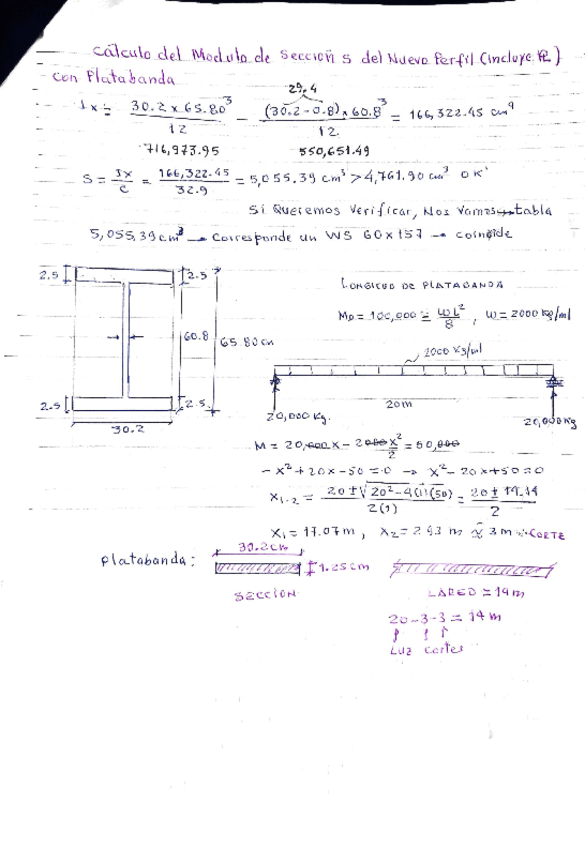 Calculo del Modulo de Sección S del Nuevo Perfil (incluye PL)
con Platabanda
29.4
Ix = 30.2 x 65.80³ / 12 - (30.2 - 0.8) x 60.8³ / 12 = 166,322.45 cm⁴
716,973.95 550,651.49
S = Ix / c = 166,322.45 / 32.9 = 5,055.39 cm³ > 4,761.90 cm³ OK
Si Queremos Verificar, Nos Vamos tabla
5,055,39 cm³ → Corresponde un WS 60x157 → coincide
2.5 2.5
LONGITUD DE PLATABANDA
MD = 100,000 = WL² / 8 , W = 2000 kg/ml
60.8 65.80 cm
2000 kg/ml
20m
2.5 2.5
30.2
20,000 Kg. 20,000 Kg
M = 20,000x - 2000x² / 2 = 50,000
- x² + 20x - 50 = 0 → x² - 20x + 50 = 0
X1-2 = 20 ± √20² - 4(1)(50) / 2(1) = 20 ± 14.14 / 2
X1 = 17.07m , X2 = 2.93 m ≈ 3m ∴ CORTE
30.2cm
Platabanda: 1.25cm
SECCION LARGO = 14m
20-3-3 = 14m
Luz Cortes